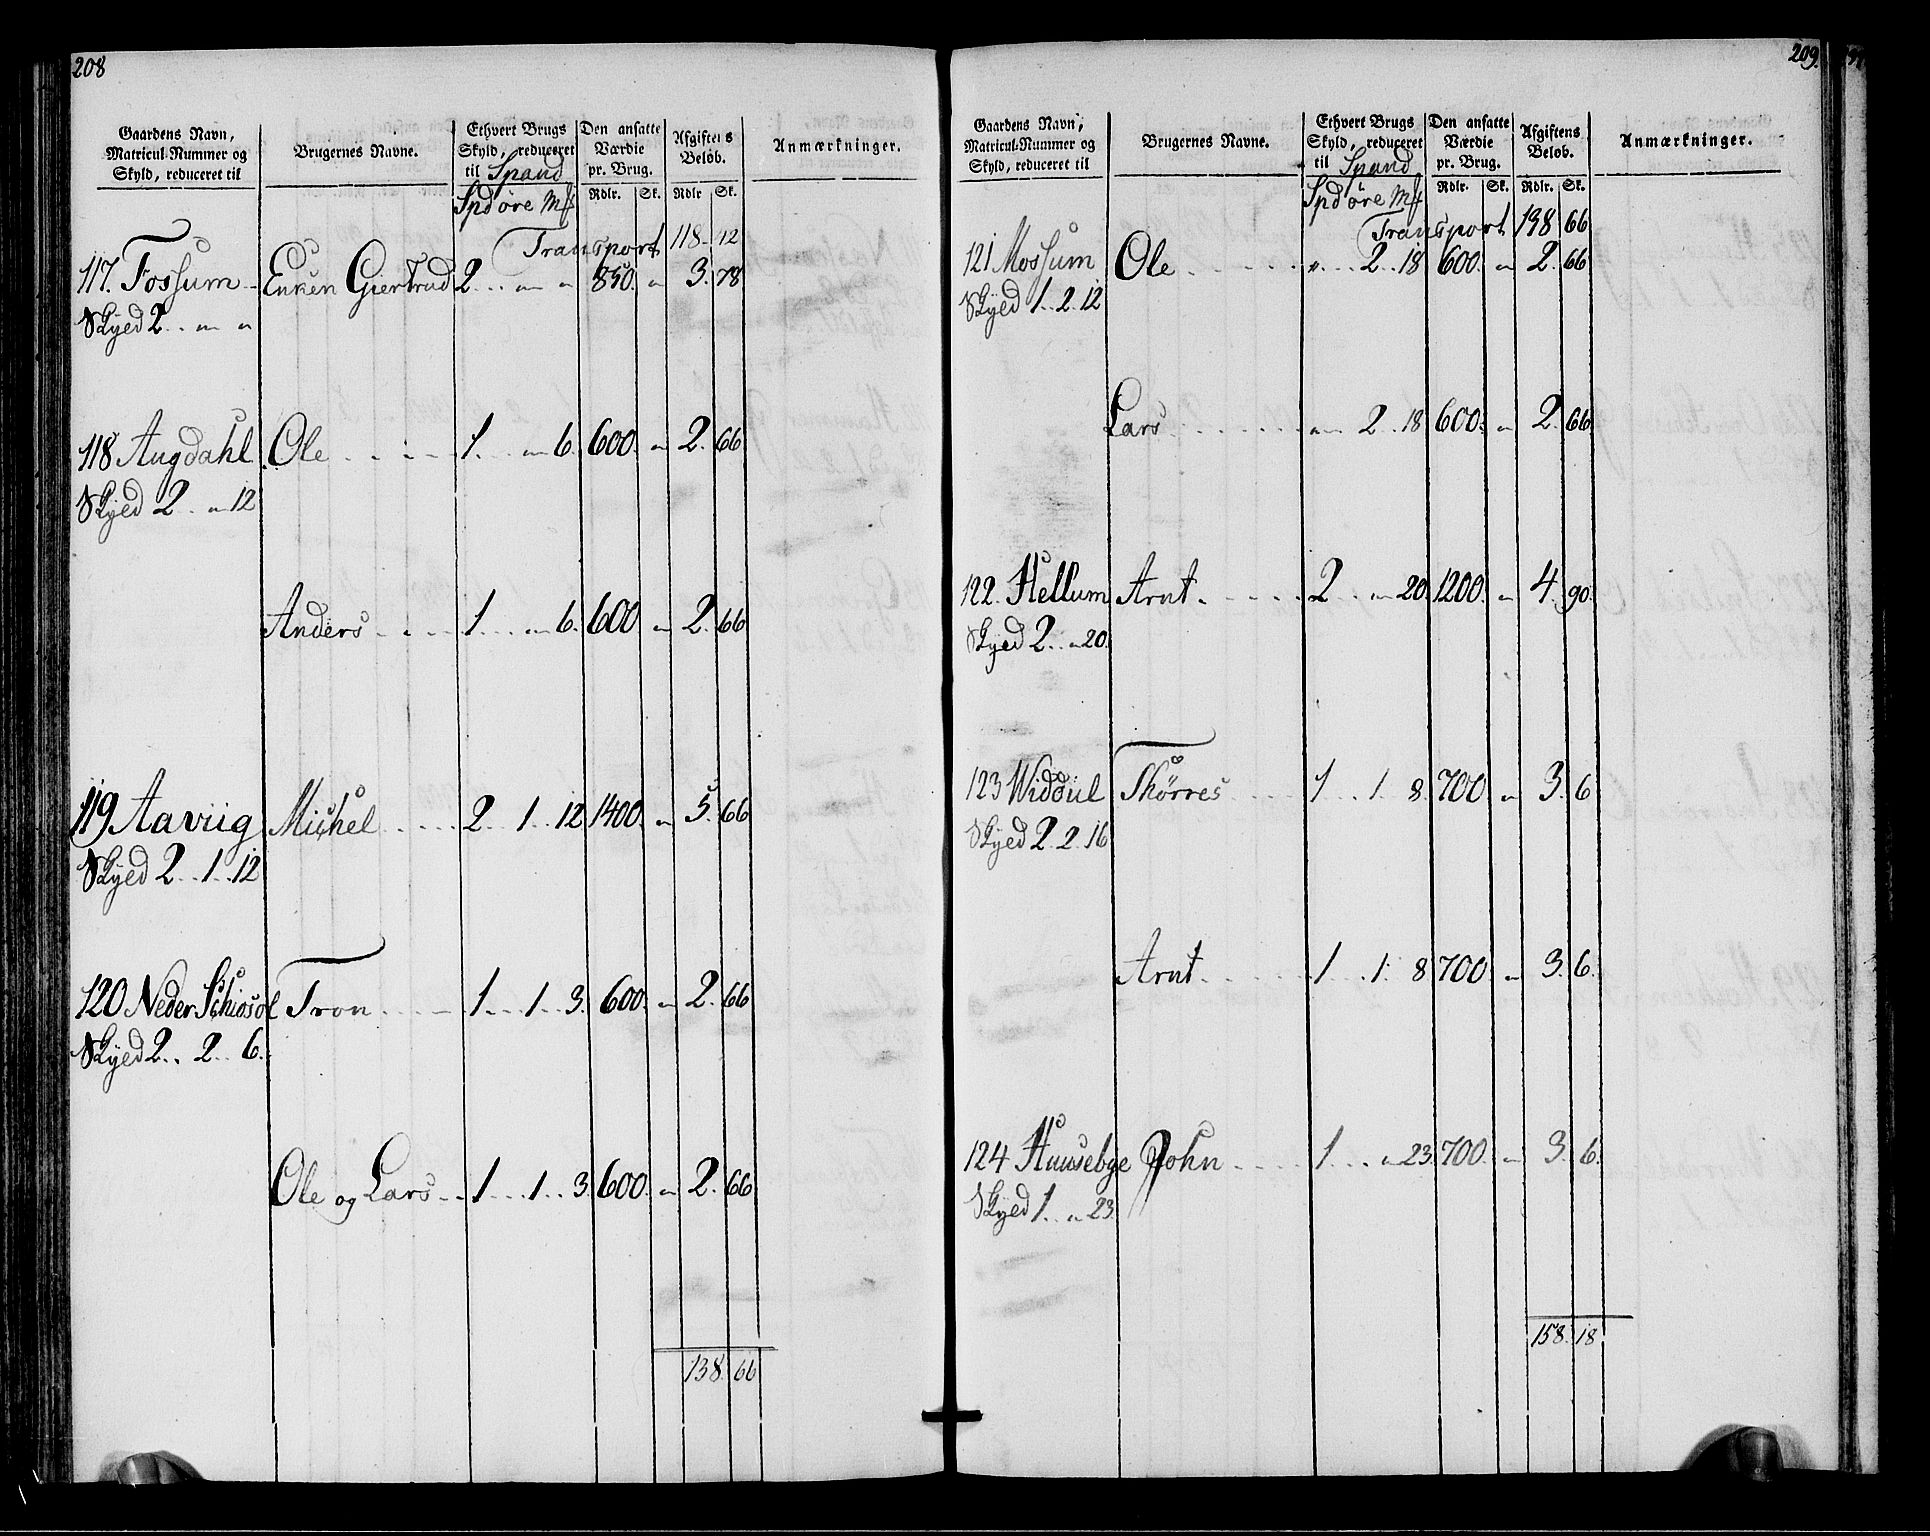 208
Gaardens Navn, Matricul-Nummer og Skyld, reduceret til | Brugernes Navne. | Ethvert Brugs Skyld, reduceret til Spand | Den ansatte Værdie pr. Brug. | Afgiftens Beløb. | Anmærkninger.
Spd øre Mk | Rdlr. Sk. | Rdlr Sk.
Transport 118 - 12
117. Fossum - Enken Giertrud 2 . . . „ „ 850. „ 3. 78
Skyed 2 . . „ „
118 Augdahl Ole . . . . 1 . . . „ 6. 600. „ 2. 66
Skyed 2 . . „ 12
Anders . . . . 1 . . . „ 6. 600 „ 2. 66
119 Aaviig Michel . . . . 2 . . 1 . . 12 1400. „ 5. 66
Skyed 2 . . 1 . . 12
120 Neder Schiosol Tron . . . . 1 . . . 1 . . 3. 600. „ 2. 66
Skyed 2 . . 2 . . 6.
Ole og Lars . . 1 . . . 1 . . 3. 600. „ 2. 66
138. 66
209.
Gaardens Navn, Matricul-Nummer og Skyld, reduceret til | Brugernes Navne. | Ethvert Brugs Skyld, reduceret til Spand | Den ansatte Værdie pr. Brug. | Afgiftens Beløb. | Anmærkninger.
Spd øre Mk | Rdlr. Sk. | Rdlr. Sk.
Transport 138 66
121 Mossum Ole . . . . „ . . . 2 . . 18 600. „ 2. 66
Skyed 1 . . 2 . 12
Lars . . . . „ . . 2 . . 18 600. „ 2. 66
122. Hellum Arnt . . . . 2 . . „ 20. 1200. „ 4. 90.
Skyed 2 . . „ 20.
123 Widdul Thørres . . . . 1 . . 1. 8. 700. „ 3. 6
Skyed 2 . 2 . 16
Arnt . . . . 1 . . 1. 8 700. „ 3. 6.
124 Huusebye John . . . . 1 . . . „ 23. 700. „ 3. 6.
Skyed 1 . . „ 23.
158. 18